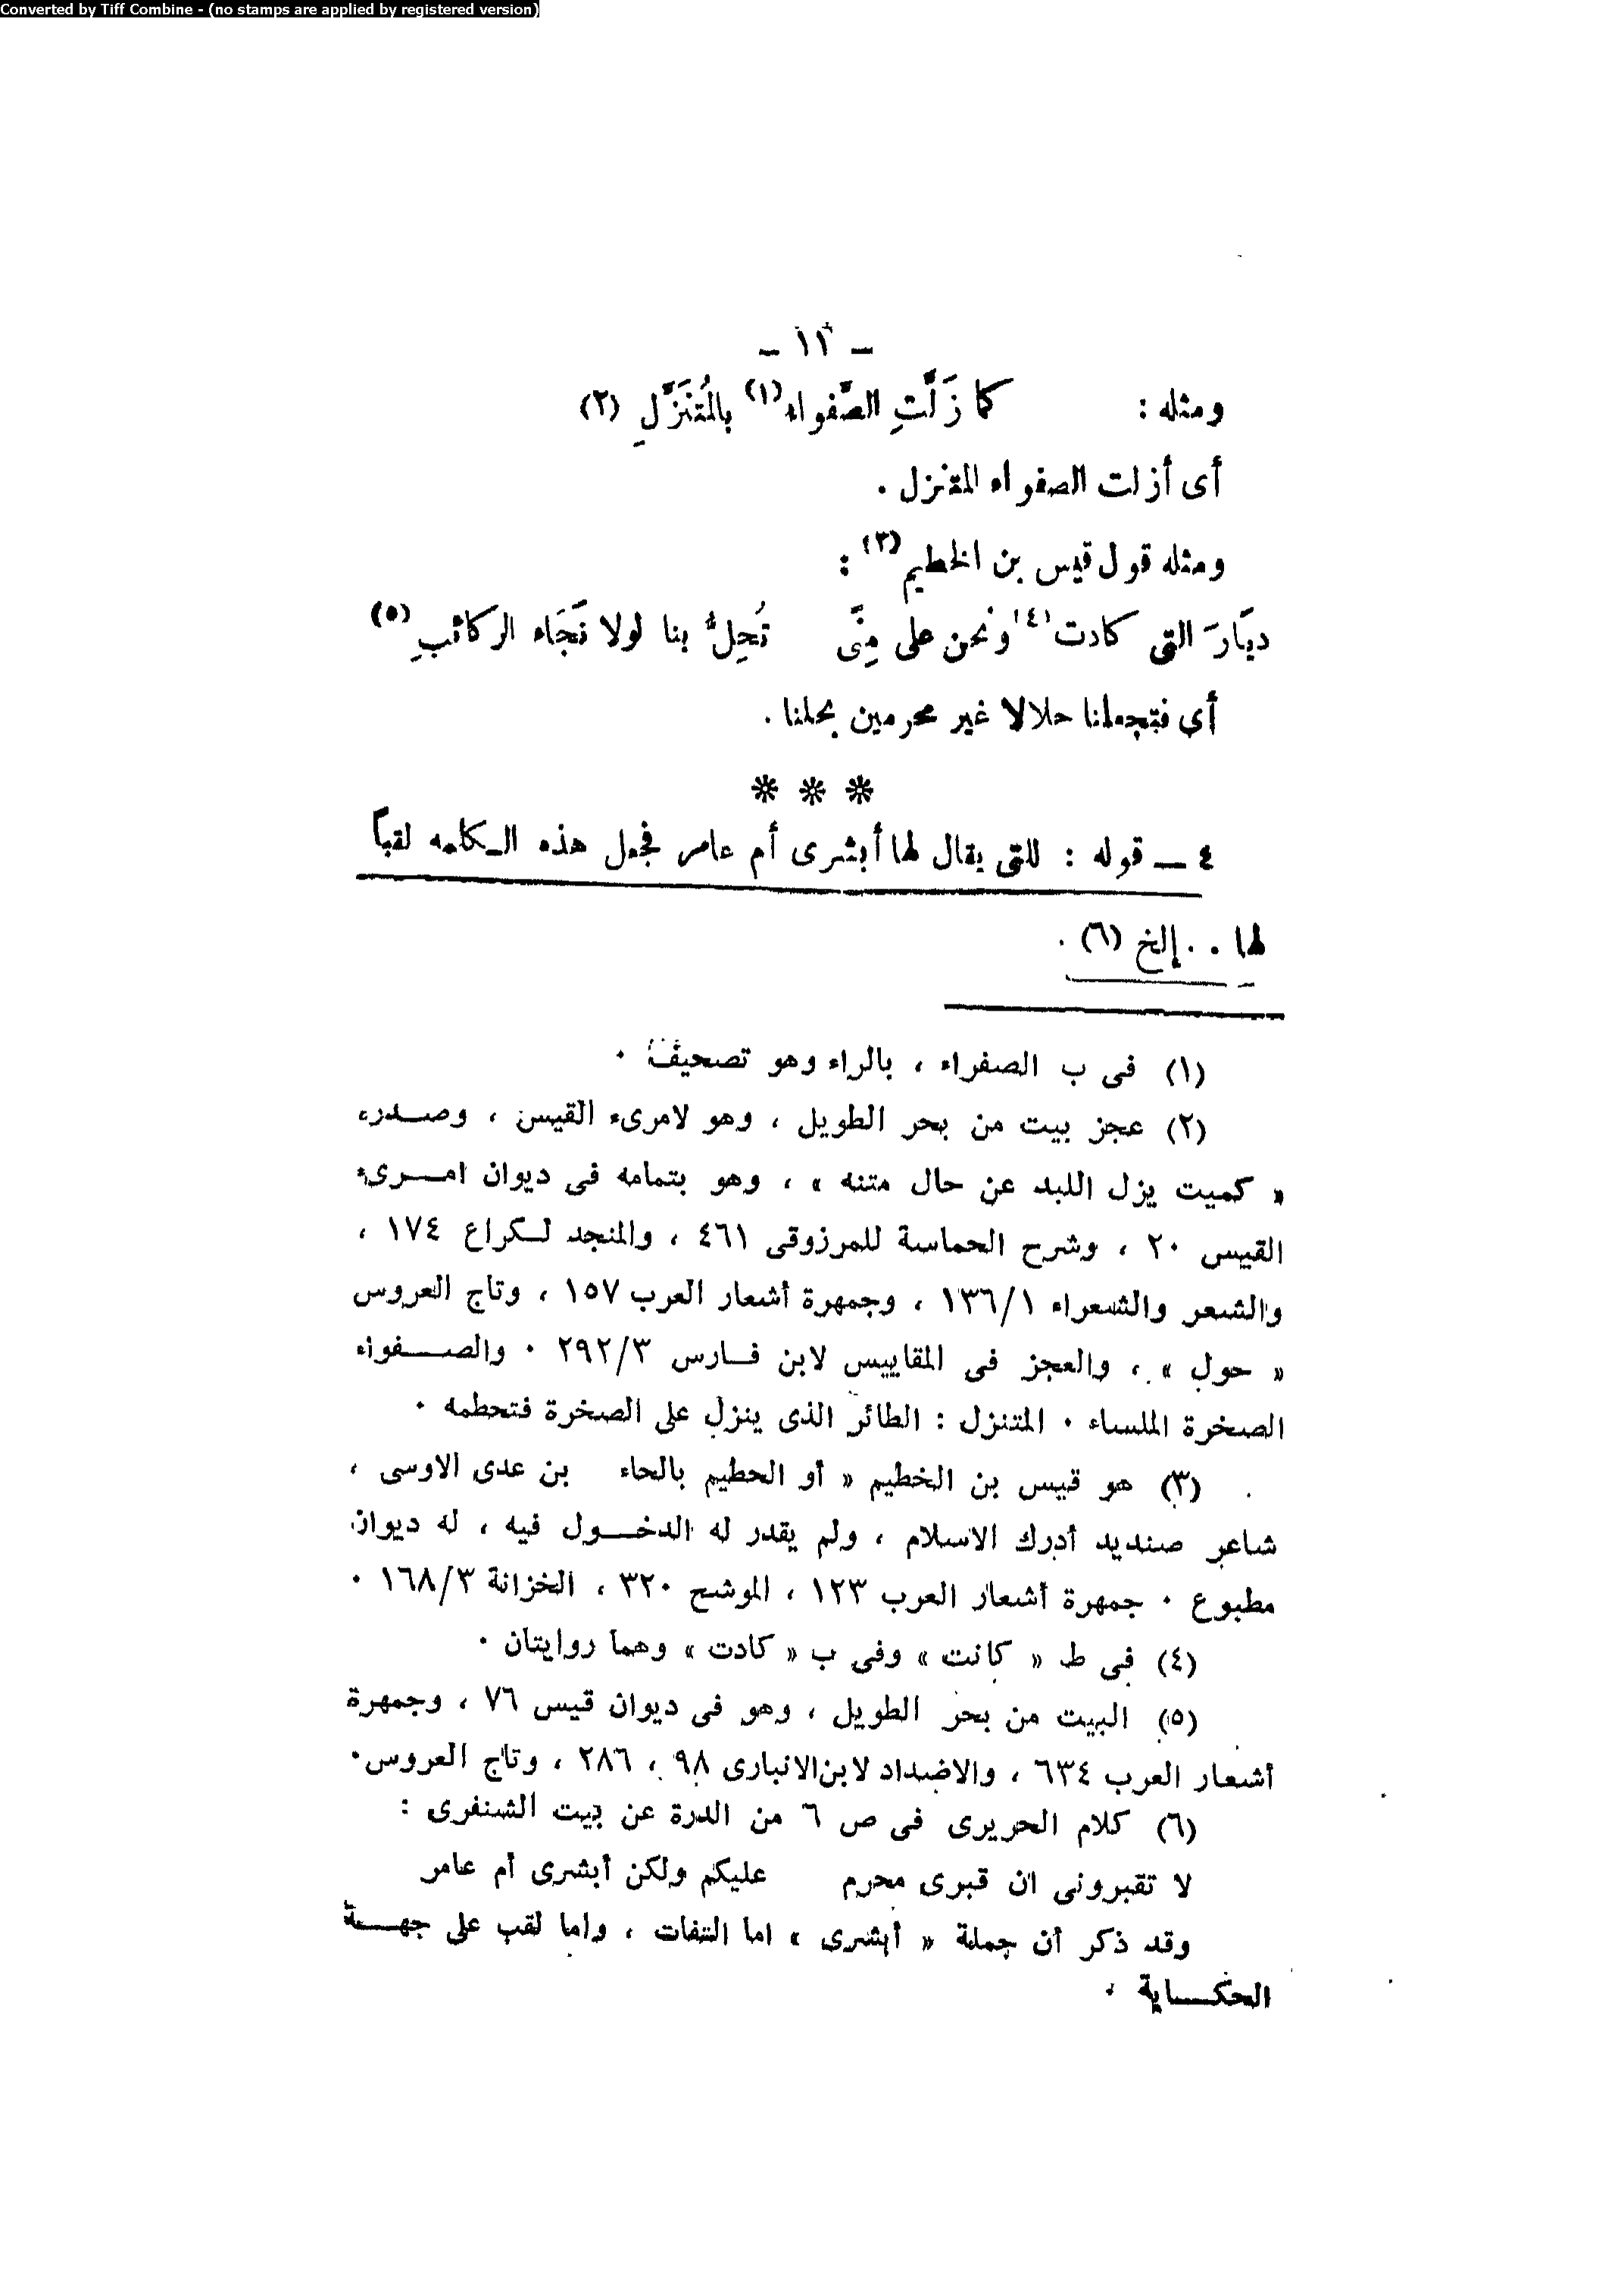 Converted by Tiff Combine - (no stamps are applied by registered version)
ـ ١٢ ـ
ومثله : كما زَلَّتِ الصَّفواء(١) بالمُتَنَزَّلِ (٢)
أى أزلت الصفواء المتنزل .
ومثله قول قيس بن الخطيم (٣) :
ديَارَ التى كادت(٤) ونحن على مِنًى تُحِلُّ بنا لولا نَجَاء الركائبِ (٥)
أى فتجعلنا حلالا غير محرمين بحلنا .
* * *
٤ ــ قوله : للتى يقال لها أبشرى أم عامر فجعل هذه الـكلمه لقباً
لها . . إلخ (٦) .
(١) فى ب الصفراء ، بالراء وهو تصحيف .
(٢) عجز بيت من بحر الطويل ، وهو لامرىء القيس ، وصــدره
« كميت يزل اللبد عن حال متنه » ، وهو بتمامه فى ديوان امــرىء
القيس ٢٠ ، وشرح الحماسة للمرزوقى ٤٦١ ، والمنجد لــكراع ١٧٤ ،
والشعر والشعراء ١٣٦/١ ، وجمهرة أشعار العرب ١٥٧ ، وتاج العروس
« حول » ، والعجز فى المقاييس لابن فــارس ٢٩٢/٣ . والصــفواء
الصخرة الملساء . المتنزل : الطائر الذى ينزل على الصخرة فتحطمه .
(٣) هو قيس بن الخطيم « أو الحطيم بالحاء بن عدى الاوسى ،
شاعر صنديد أدرك الاسلام ، ولم يقدر له الدخــول فيه ، له ديوان
مطبوع . جمهرة أشعار العرب ١٢٣ ، الموشح ٣٢٠ ، الخزانة ١٦٨/٣ .
(٤) فى ط « كانت » وفى ب « كادت » وهما روايتان .
(٥) البيت من بحر الطويل ، وهو فى ديوان قيس ٧٦ ، وجمهرة
أشعار العرب ٦٣٤ ، والاضداد لابن الانبارى ٩٨ ، ٢٨٦ ، وتاج العروس .
(٦) كلام الحريرى فى ص ٦ من الدرة عن بيت الشنفرى :
لا تقبرونى ان قبرى محرم عليكم ولكن أبشرى أم عامر
وقد ذكر أن جملة « أبشرى » اما التفات ، واما لقب على جهــة
الحكــاية .